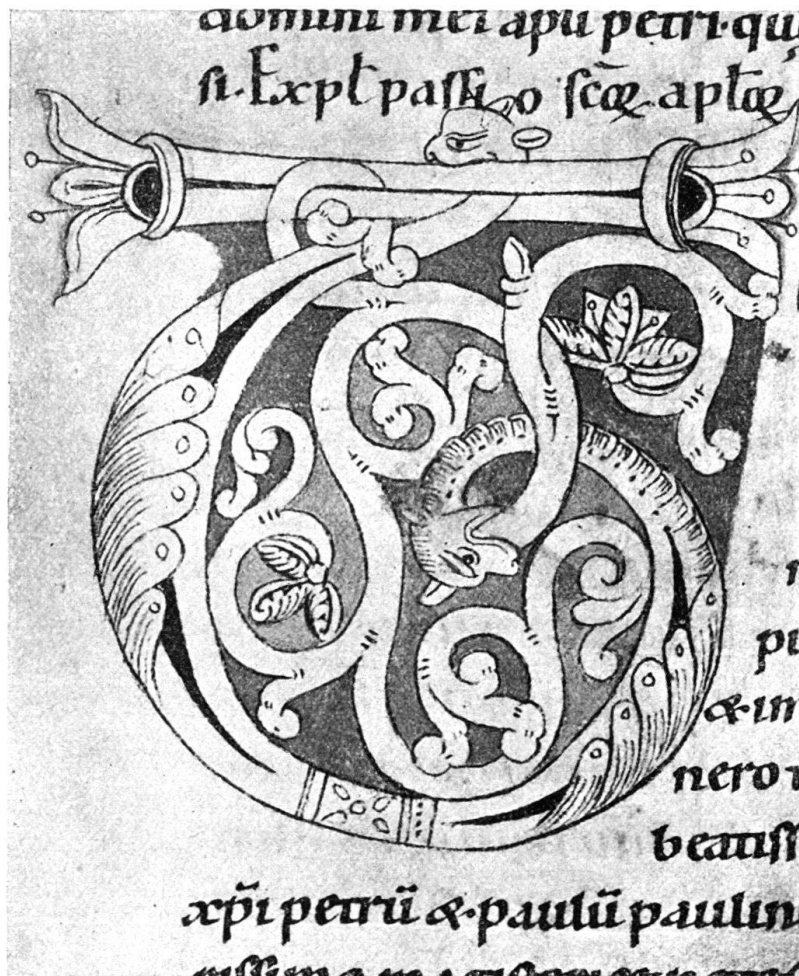 domini mei apli petri. qu
si. Expl̄ passio sc̄oꝝ. apl̄oꝝ
pu
& in
nero
beatiss
xp̄i petrū & paulū paulin